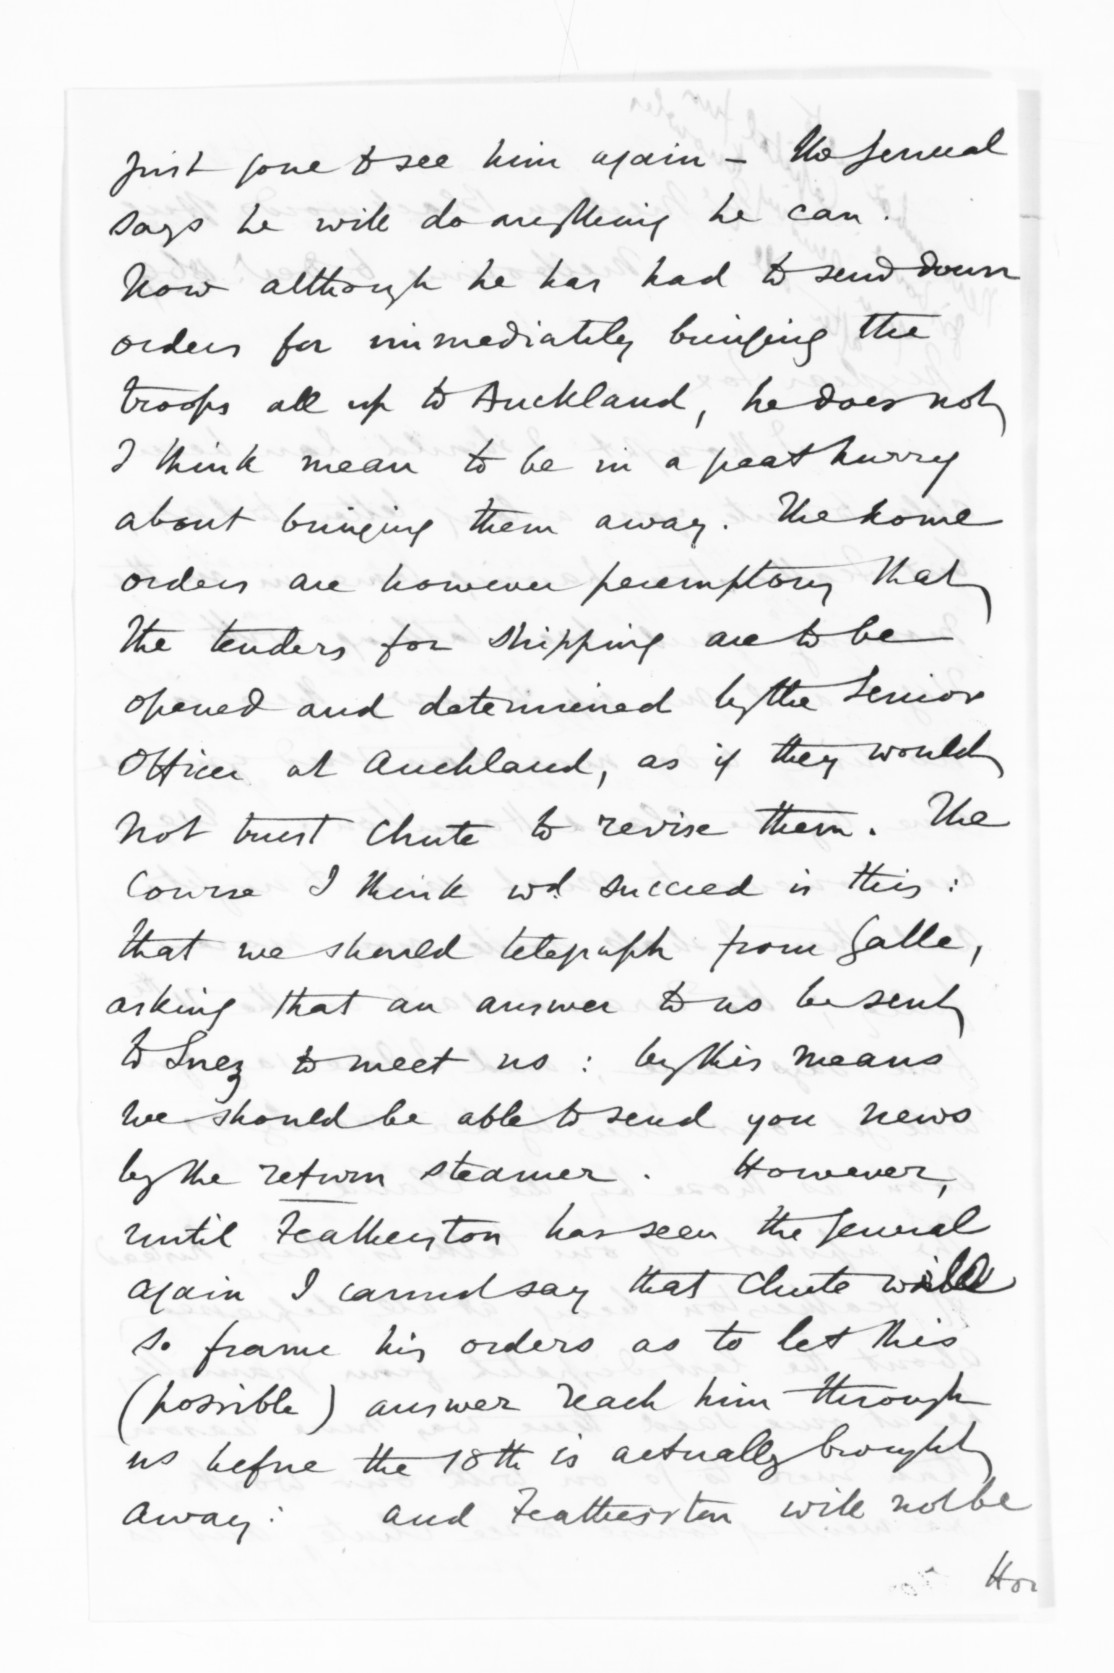 just gone to see him again – The General
says he will do anything he can.
Now although he has had to send down
orders for immediately bringing the
troops all up to Auckland, he does not
I think mean to be in a great hurry
about bringing them away. The home
orders are however peremptory that
the tenders for shipping are to be
opened and determined by the Senior
Officer at Auckland, as if they would
not trust Chute to revise them. The
course I think wd. succeed is this:
that we should telegraph from Galle,
asking that an answer to us be sent
to Suez to meet us: by this means
we should be able to send you news
by the return steamer. However,
until Featherston has seen the General
again I cannot say that Chute will
so frame his orders as to let this
(possible) answer reach him through
us before the 18th is actually brought
away: and Featherston will not be